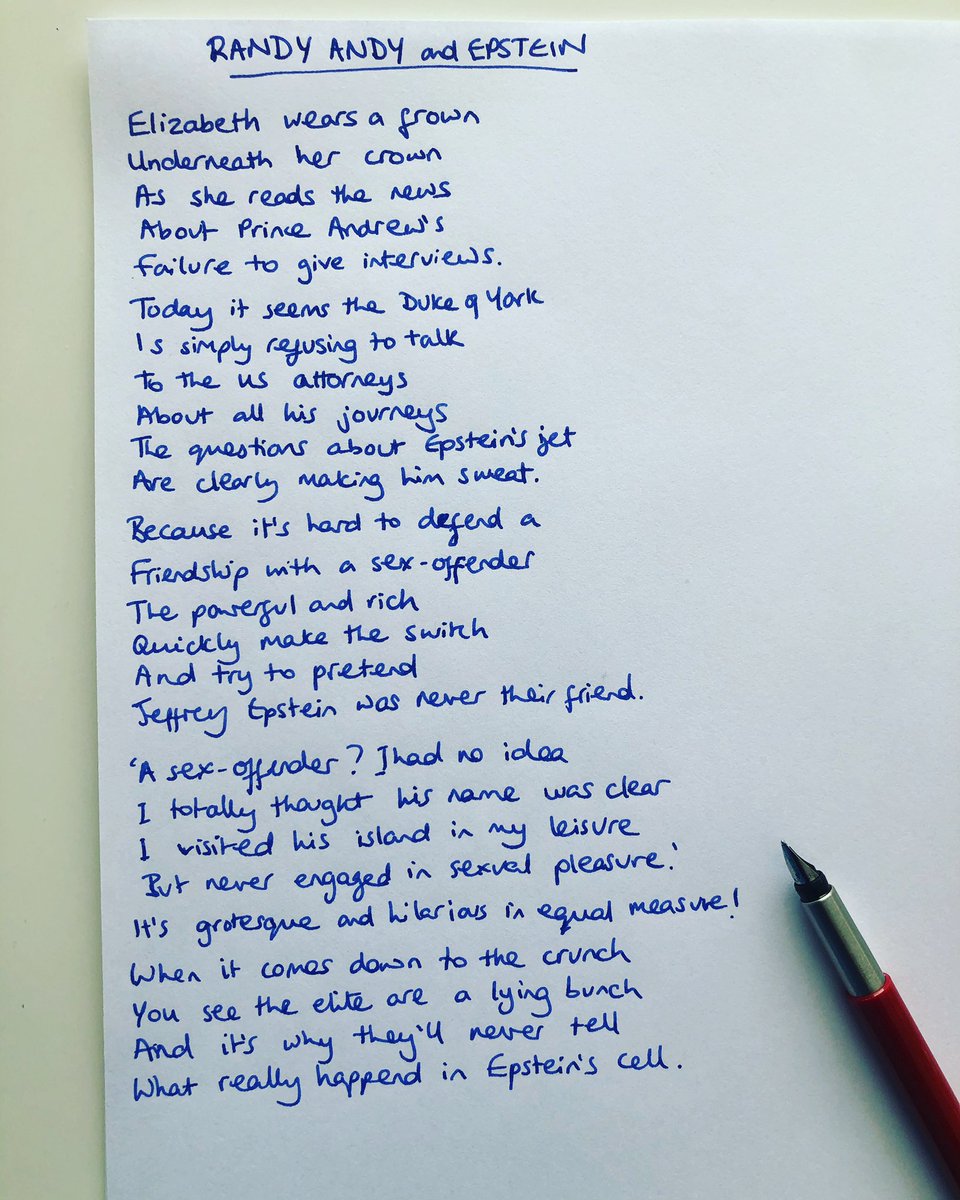 RANDY ANDY and EPSTEIN
Elizabeth wears a frown
Underneath her crown
As she reads the news
About Prince Andrew's
Failure to give interviews.
Today it seems the Duke of York
Is simply refusing to talk
To the US attorneys
About all his journeys
The questions about Epstein's jet
Are clearly making him sweat.
Because it's hard to defend a
Friendship with a sex-offender
The powerful and rich
Quickly make the switch
And try to pretend
Jeffrey Epstein was never their friend.
'A sex-offender? I had no idea
I totally thought his name was clear
I visited his island in my leisure
But never engaged in sexual pleasure.'
It's grotesque and hilarious in equal measure!
When it comes down to the crunch
You see the elite are a lying bunch
And it's why they'll never tell
What really happend in Epstein's cell.